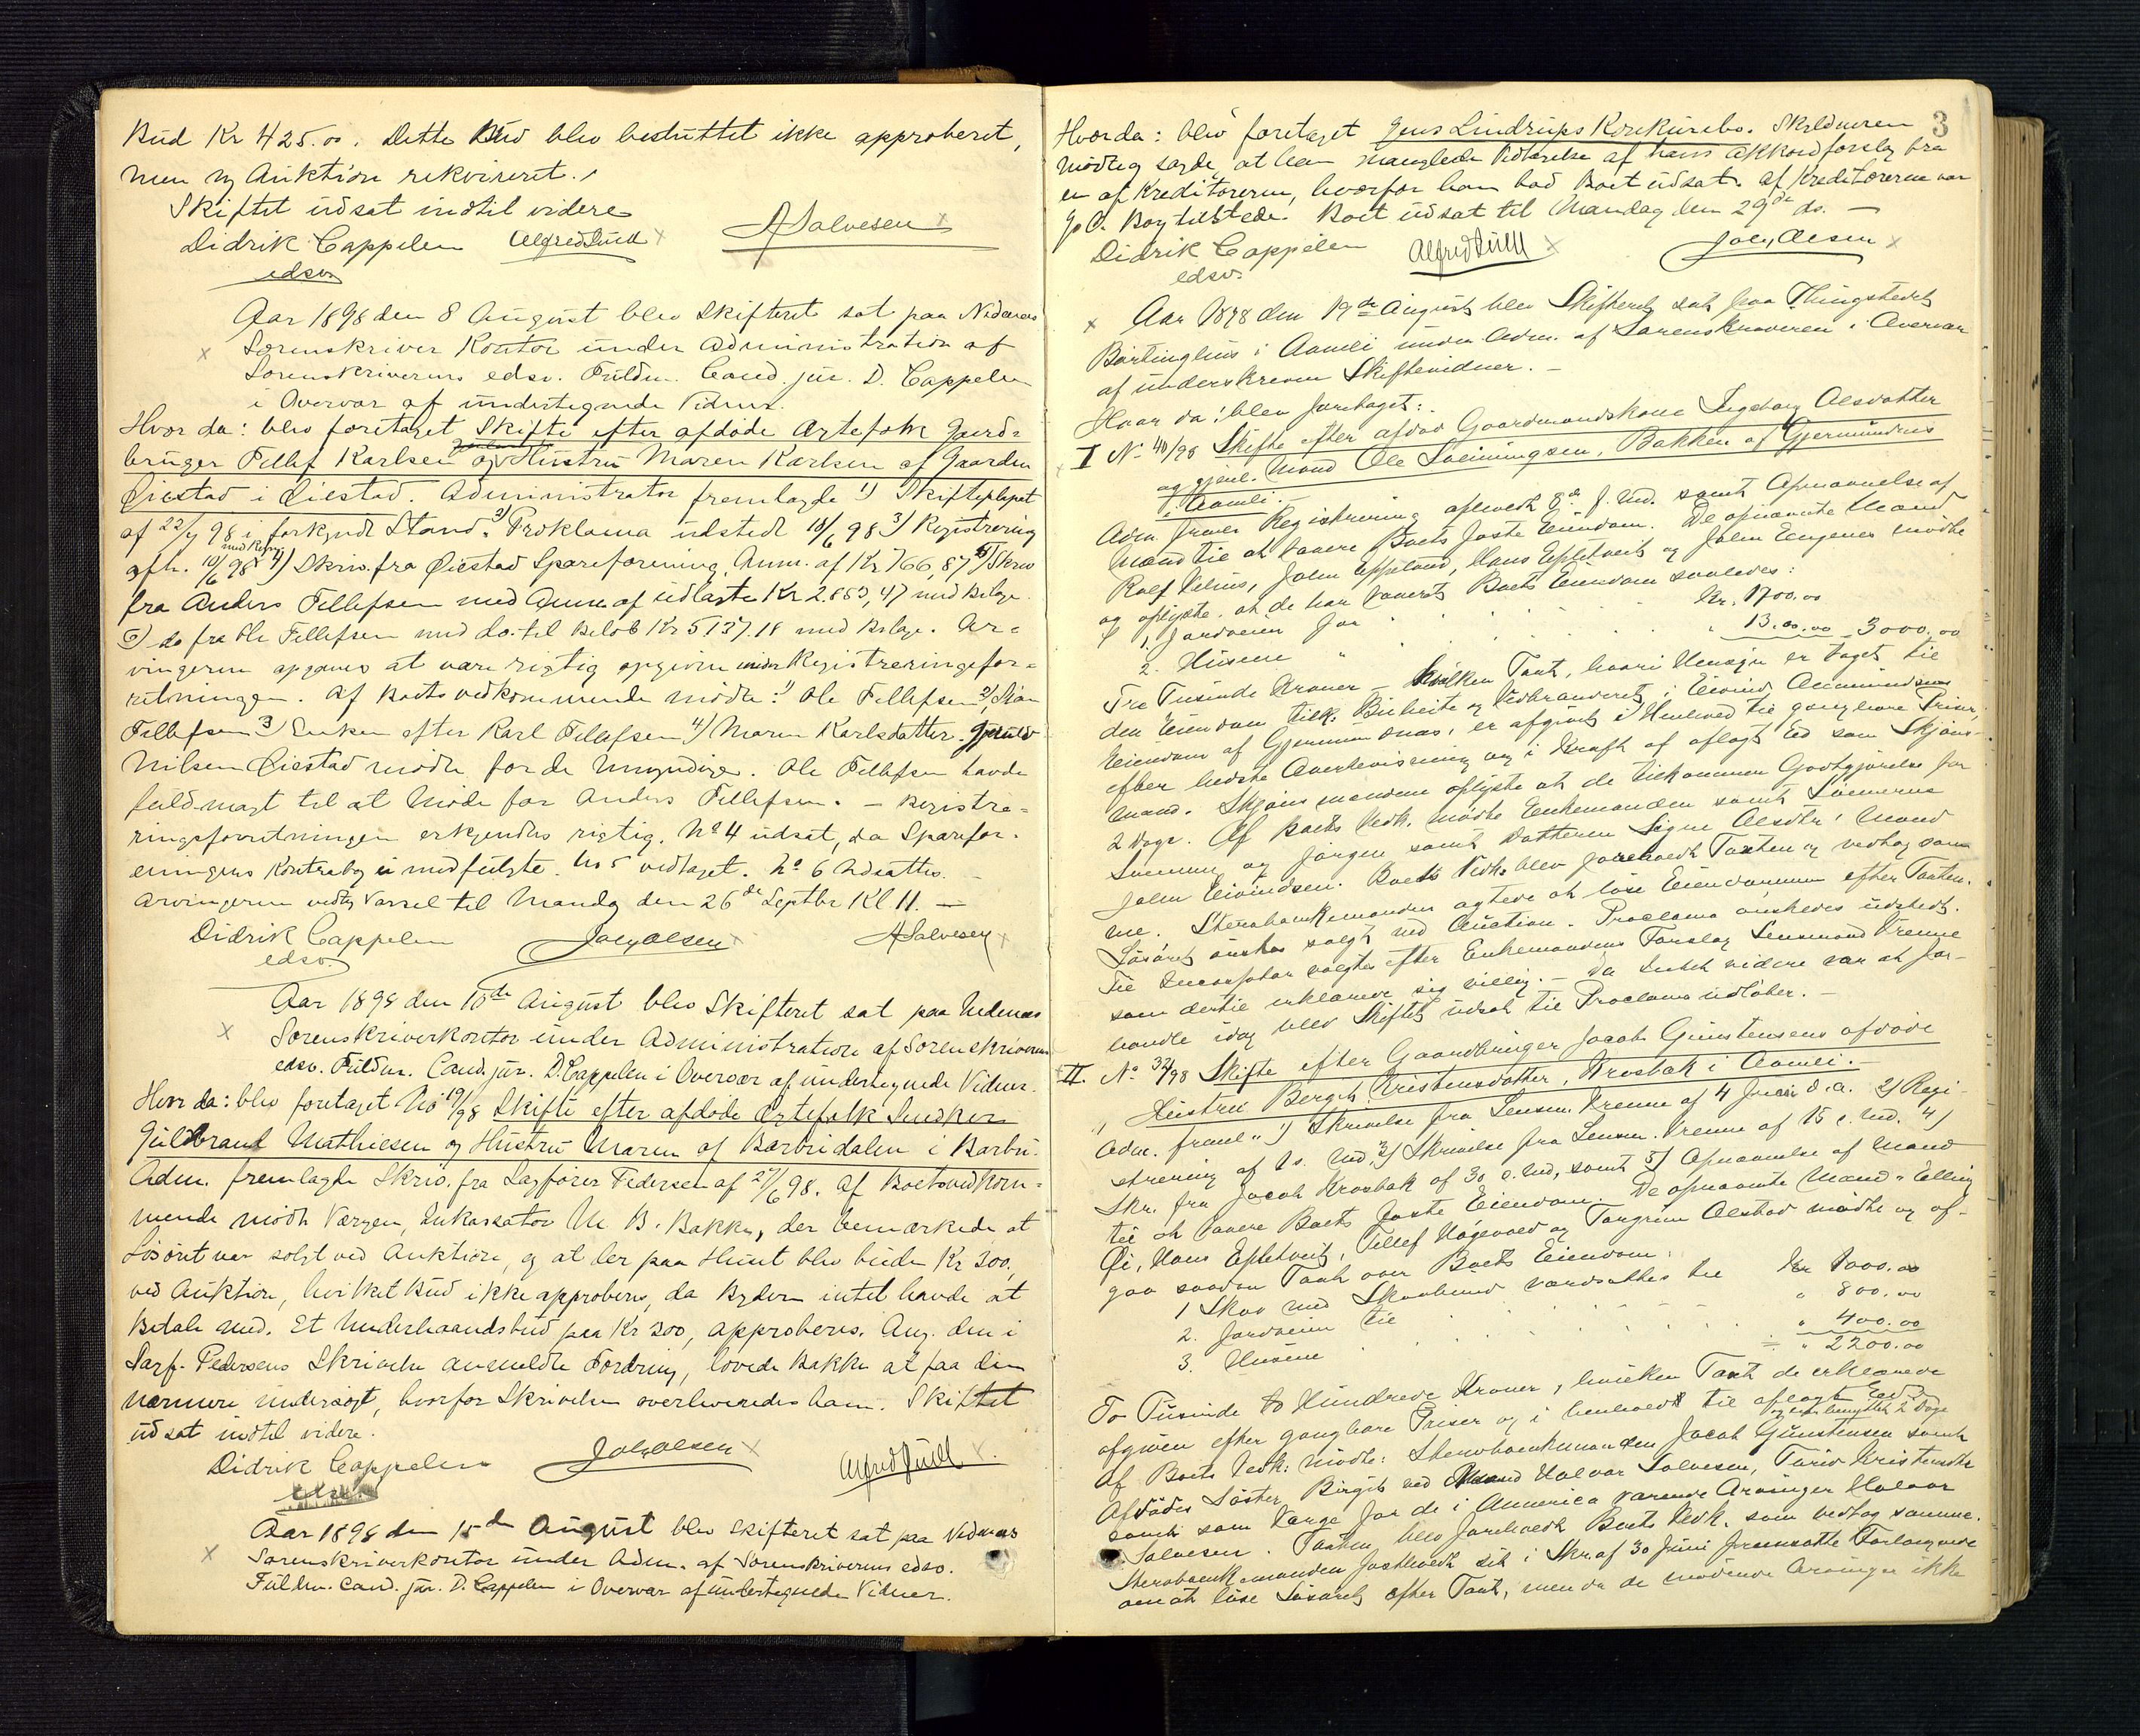 Bud Kr 425.00. Dette Bud blev besluttet ikke approberet,
men ny Auktion rekvireret.
Skiftet udsat indtil videre
Didrik Cappelen Alfred Juell A Salvesen
edsv.
Aar 1898 den 8 August blev Skifteret sat paa Nedenæs
Sorenskriver Kontor under Administration af
Sorenskriverens edsv. Fuldm. Cand. jur. D. Cappelen
i Overvær af undertegnede Vidner.
Hvor da: blev foretaget Skifte efter afdøde Ægtefolk Gaard-
bruger Tellef Karlsen og Hustru Maren Karlsen af Gaarden
Øiestad i Øiestad. Administrator fremlagde 1) Skifteplapat
af 22/4 98 i forkyndt Stand. 2) Proklama udstedt 18/6 98 3) Registrering
afh. 10/6 98 4) Skriv. fra Øiestad Spareforening, Anm. af Kr 766,87 5) Skriv
fra Anders Tellefsen med Anm af udlagte Kr 2.883,47 med Bilage.
6) do fra Ole Tellefsen med do. til Beløb Kr 5137.18 med Bilage. Ar-
vingerne opgaves at være rigtig opgivne under Registreringsfor-
retningen. Af Boets vedkommende mødte: 1) Ole Tellefsen 2)
Tellefsen 3) Enken efter Karl Tellefsen 4) Maren Karlsdatter.
Nilsen Øiestad mødte for de Umyndige. Ole Tellefsen havde
fuldmagt til at Møde for Anders Tellefsen. – Registre-
ringsforretningen erkjendes rigtig. No 4 udsat, da Sparefor-
eningens Kontrabog ei medfulgte. No 5 vedtaget. No 6 Udsattes. –
Arvingerne vedtog Varsel til Mandag den 26de Septbr Kl 11. –
Didrik Cappelen Joh. Olsen A Salvesen
edsv.
Aar 1898 den 10de August blev Skifteret sat paa Nedenæs
Sorenskriverkontor under Administration af Sorenskriverens
edsv. Fuldm. Cand. jur. D. Cappelen i Overvær af undertegnede Vidner.
Hvor da: blev foretaget No 19/98 Skifte efter afdøde Ægtefolk Snedker
Guldbrand Mathiesen og Hustru Maren af Barbudalen i Barbu.
Adm. fremlagde Skriv. fra Sagfører Pedersen af 27/6 98. Af Boets vedkom-
mende mødte Værgen, Inkassator M. B. Bakke, der bemærkede at
Løsøret var solgt ved Auktion, og at der paa Huset blev buden Kr 300,
ved Auktion, hvilket Bud ikke approberes, da Byderen intet havde at
Betale med. Et Underhaandsbud paa Kr 300, approberes. Ang. den i
Sagf. Pedersens Skrivelse anmeldte Fordring, lovede Bakke at faa den
nærmere undersøgt, hvorfor Skrivelsen overleveredes ham. Skiftet
udsat indtil videre.
Didrik Cappelen Joh. Olsen Alfred Juell
edsv.
Aar 1898 den 15de August blev Skifteret sat paa Nedenæs
Sorenskriverkontor under Adm. af Sorenskriverens edsv.
Fuldm. Cand. jur. D. Cappelen i Overvær af undertegnede Vidner.
3
Hvor da: blev foretaget Jens Lindrups Konkursbo. Skyldneren
mødte og sagde, at han manglede Vedtagelse af hans Akkordforslag fra
en af Kreditorerne, hvorfor han bad Boet udsat. Af Kreditorerne var
J. C. Boy tilstede. Boet udsat til Mandag den 29de ds. –
Didrik Cappelen Alfred Juell Joh. Olsen
edsv.
Aar 1898 den 19de August blev Skifteret sat paa Thingstedet
Bærtinghus i Aamli under Adm. af Sorenskriveren i Overvær
af underskrevne Skiftevidner. –
Hvor da: blev foretaget:
I No 40/98 Skifte efter afdød Gaardmandskone Ingeborg Olsdatter
og gjenl. Mand Ole Sveinungsen, Bakken af Gjermundnes
i Aamli. –
Adm. freml. Registrering afholdt 8de f. Md. samt Opnævnelse af
Mænd til at taxere Boets faste Eiendom. De opnævnte Mænd
Rolf Vehus, John Eppeland, Hans Epletveit og John Engenes mødte
og oplyste at de har taxeret Boets Eiendom saaledes:
1. Jordveien for Kr. 1700.00
2. Husene " " 1300.00 3000.00
Tre Tusinde Kroner – hvilken Taxt, hvori Hensyn er taget til
den Eiendom tilk. Buhelte og Vedbrænderet i Eivind Aamundsens
Eiendom af Gjermundnæs, er afgivet i Henhold til gangbare Priser,
efter bedste Overbevisning og i Kraft af aflagt Ed som Skjøns-
mænd. Skjønsmændene oplyste at de tilkommer Godtgjørelse for
2 Dage. Af Boets Vedk. mødte Enkemanden samt Sønnerne
Svenum og Jørgen samt Datteren Signe Olsdtr' Mand
John Eivindsen. Boets Vedk. blev foreholdt Taxten og vedtog sam-
me. Stervboenkemanden agtede at løse Eiendommen efter Taxten.
Løsøret ønskes solgt ved Auction. Proclama ønskedes udstedt.
Til Incassator valgtes efter Enkemandens Forslag Lensmand Vrenne
som dertil erklærede sig villig. – Da Intet videre var at for-
handle idag blev Skiftet udsat til Proclama udløber. –
II. No 32/98 Skifte efter Gaardbruger Jacob Gunstensens afdøde
Hustru Bergit Kristensdatter, Krosbak i Aamli. –
Adm. freml. 1) Skrivelse fra Lensm. Vrenne af 4 Juni d.a. 2) Regi-
strering af 1 s. Md. 3) Skrivelse fra Lensm. Vrenne af 15 s. Md. 4)
Skr. fra Jacob Krosbak af 30 s. Md, samt 5) Opnævnelse af Mænd
til at taxere Boets faste Eiendom. De opnævnte Mænd: Elling
Øi, Hans Epletveit, Tellef Høgevold og Torgrim Olstad mødte og af-
gav saadan Taxt over Boets Eiendom:
1 Skov med Skovbund værdsættes til Kr 1000.00
2. Jordveien til " 800.00
3. Husene " 400.00
÷ " 2200.00
To Tusinde to Hundrede Kroner, hvilken Taxt de erklærede
afgiven efter gangbare Priser og i henhold til aflagt Ed.
og har benyttet 2 Dage
Af Boets Vedk. mødte: Stervboenkemanden Jacob Gunstensen samt
Afdødes Søster Birgit ved Mand Halvor Salvesen, Turid Kristensdtr
samt som Værge for de i Amerika værende Arvinger Halvor
Salvesen. Taxten blev foreholdt Boets Vedk. som vedtog samme.
Stervboenkemanden fastholdt sit i Skr. af 30 Juni fremsatte Forlangende
om at løse Løsøret efter Taxt, men da de mødende Arvinger ikke